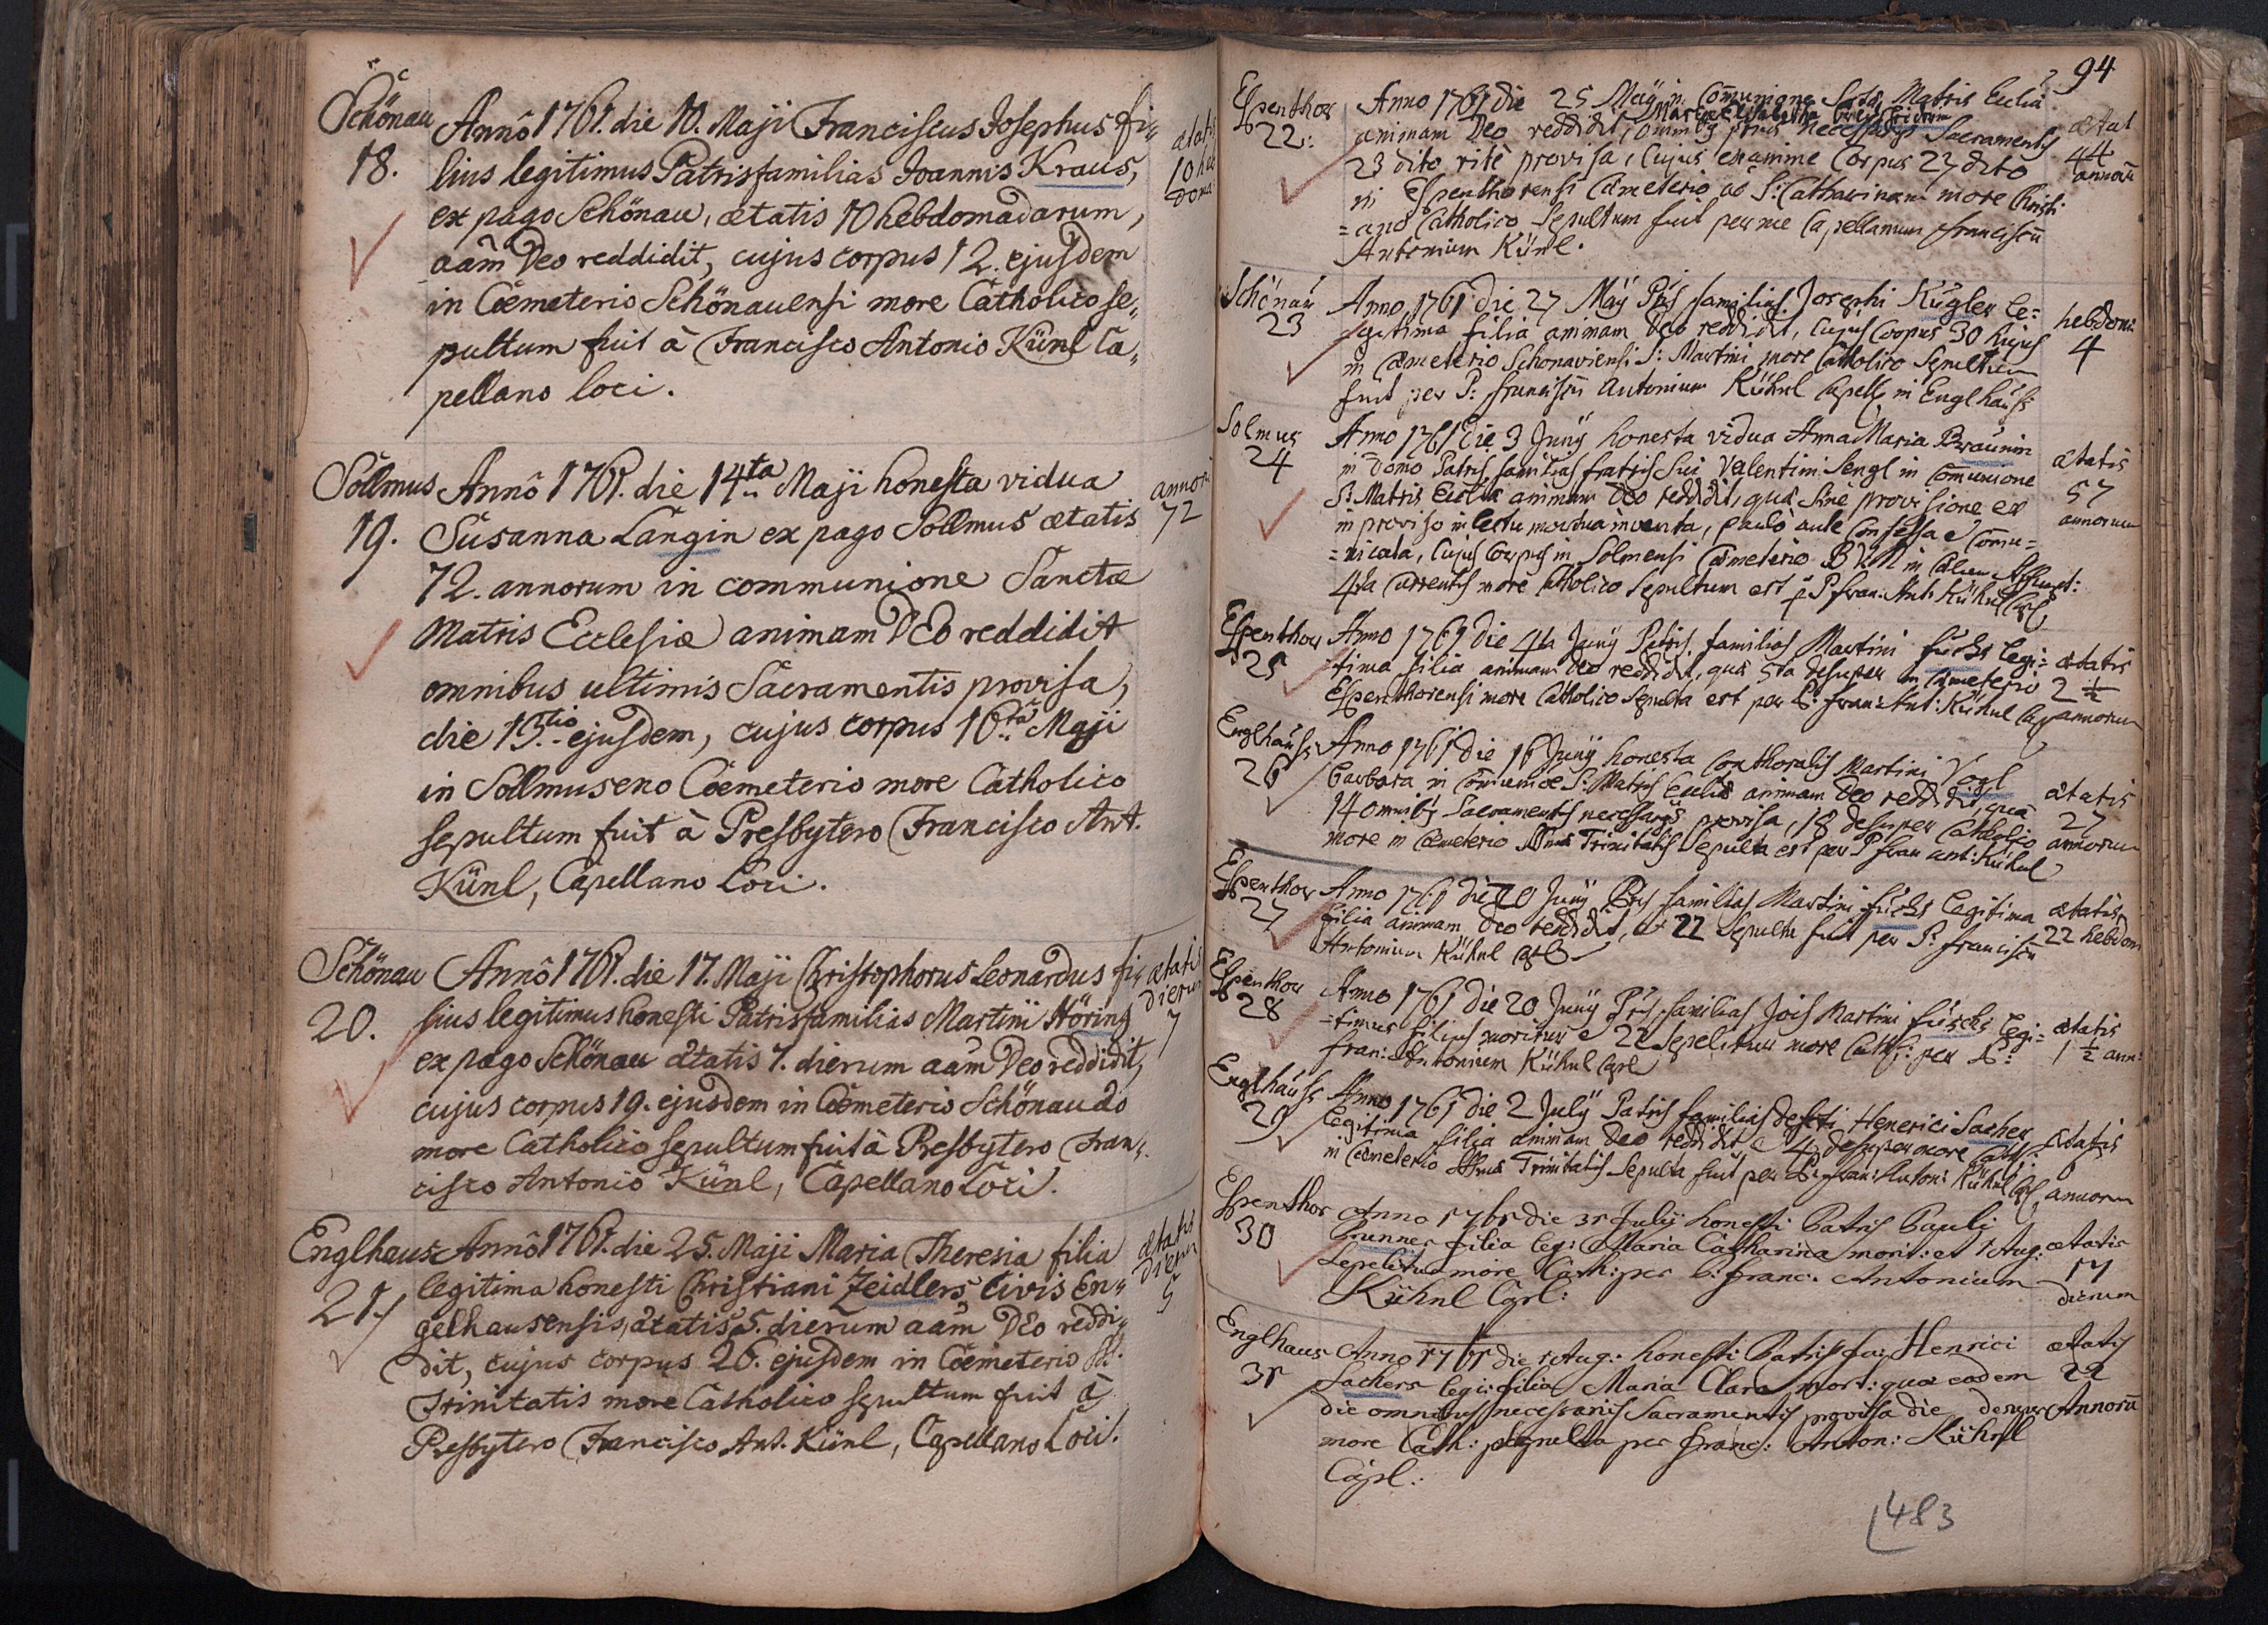 Schönau Annô 1761. die 10. Maji Franciscus Josephus fi„ ætatis
18. lius legitimus Patrisfamilias Joannis Kraus, 10 heb
ex pago Schönau, ætatis 10 hebdomadarum, doma
aam Deo reddidit, cujus corpus 12. ejusdem
in Cœmeterio Schönauensi more Catholico se„
pultum fuit à Francisco Antonio Künl Ca„
pellano loci.
Sollmus Annô 1761. die 14ta Maji honesta vidua annor
19. Susanna Langin ex pago Sollmus ætatis 72
72. annorum in communione Sanctæ
Matris Ecclesiæ animam DEo reddidit
omnibus ultimis Sacramentis provisa,
die 15tio ejusdem, cujus corpus 16ta Maji
in Sollmuseno Cœmeterio more Catholico
sepultum fuit à Presbytero Francisco Ant.
Künl, Capellano Loci.
Schönau Annô 1761. die 17. Maji Christophorus Leonardus fi„ ætatis
20. lius legitimus honesti Patrisfamilias Martini Höring dierum
ex pago Schönau ætatis 7. dierum aam Deo reddidit, 7
cujus corpus 19. ejusdem in Cœmeterio Schönau do
more Catholico sepultum fuit à Presbytero Fran„
cisco Antonio Künl, Capellano Loci.
Englhaus Annô 1761. die 25. Maji Maria Theresia filia ætatis
21. legitima honesti Christiani Zeidlers Civis En„ dierum
gelhausensis, ætatis 5. dierum aam DEo reddi„ 5
dit, cujus corpus 26. ejusdem in Cœmeterio SS.
Trinitatis more Catholico sepultum fuit à
Presbytero Francisco Ant. Künl, Capellano Loci.
94
Espenthor Anno 1761 die 25 Maÿ in Communione Matris Eccliæ
Maria Elisabetha
22: animam Deo reddidit, omnibg prius necessarys Sacramentis ætat
23 dito ritè provisa, Cujus exanime Corpus 27 dito 44
in Espenthorensi Cœmeterio ad S: Catharinam more Christi annorū
=ano Catholico Sepultum fuit per me Capellanum Franciscū
Antonium Künl.
Schönau Anno 1761 die 27 Maÿ Pris familias Josephi Kugler le=
23 gitima filia animam Deo reddidit, Cujus Corpus 30 hujus hebdom:
in Cœmeterio Schönaviensi S: Martini more Catholico Sepultum 4
fuit per P: Franciscū Antonium Kühnl Capell in Englhauß:
Solmus Anno 1761 die 3 Junÿ honesta vidua Anna Maria Braunin
24 in domo Patris familias fratris Sui Valentini Sengl in Communione ætatis
S: Matris Eccliæ animam Deo reddidit, quæ Sine provisione ex 57
improviso in lectu mortua inventa, paulò ante Confessa e Commu= annorum
=nicata, Cujus Corpus in Solmensi Cœmeterio B V M in Cælum Assumpt:
4ta Currentis more Catholico Sepultum est p P Fran: Ant: Kühnl Capl
Espenthor Anno 1761 die 4ta Junÿ Patris familias Martini Fuchs legi=
25 tima filia animam Deo reddidit, quæ 5ta desuper in Cœmeterio ætatis 2 ½
Espenthorensi more Catholico Sepulta est per P: Fran: Ant: Kühnl Cap annorum
Englhauß Anno 1761 die 16 Junÿ honesta Conthoralis Martini Vogl
26 Barbara in Comunioe S: Matris Eccliæ animam Deo reddidit, quæ ætatis
14 omnibg Sacramentis necessarys provisa, 18 desuper Catholico 27
more in Cœmeterio SSmæ Trinitatis Sepulta est per P Fran ant: Kühnl annorum
Espenthor Anno 1761 die 20 Junÿ Pris familias Martini Fuchs legitima ætatis
27 filia animam Deo reddidit, et 22 Sepulta fuit per P: Franciscū 22 hebdom
Antonium Kühnl Cpl
Espenthor Anno 1761 die 20 Junÿ Pris familias Jois Martini Fuschs legi= ætatis
28 =timus filius moritur e 22 Sepelitur more Cath: per P: 1 ½ ann:
Fran: Antonium Kühnl Cprl
Englhauß Anno 1761 die 2 Julÿ Patris familias defcti Henerici Sacher
29 legitima filia animam Deo reddidit e 4 desuper more Cath: ætatis
in Cœmeterio SSmæ Trinitatis Sepulta fuit per P: Fran: Anton: Kühnl Cpl annorum
Espenthor Anno 1761 die 31 Julÿ honesti Patris Pauli
30 Brunner filia leg: Maria Catharina morit: et 1 Aug: ætatis
Sepelitur more Cath: per P: Franc: Antonium 17
Kühnl Cprl: dierum
Englhaus Anno 1761 die 1 Aug: honesti Patris fa: Henrici ætatis
31 Sachers legi: filia Maria Clara mort: quæ eadem 22
die omnibus necessariis Sacramentis provisa die Annorū
more Cath: Sepulta per Franc: Anton: Kühnl
Capl:
483